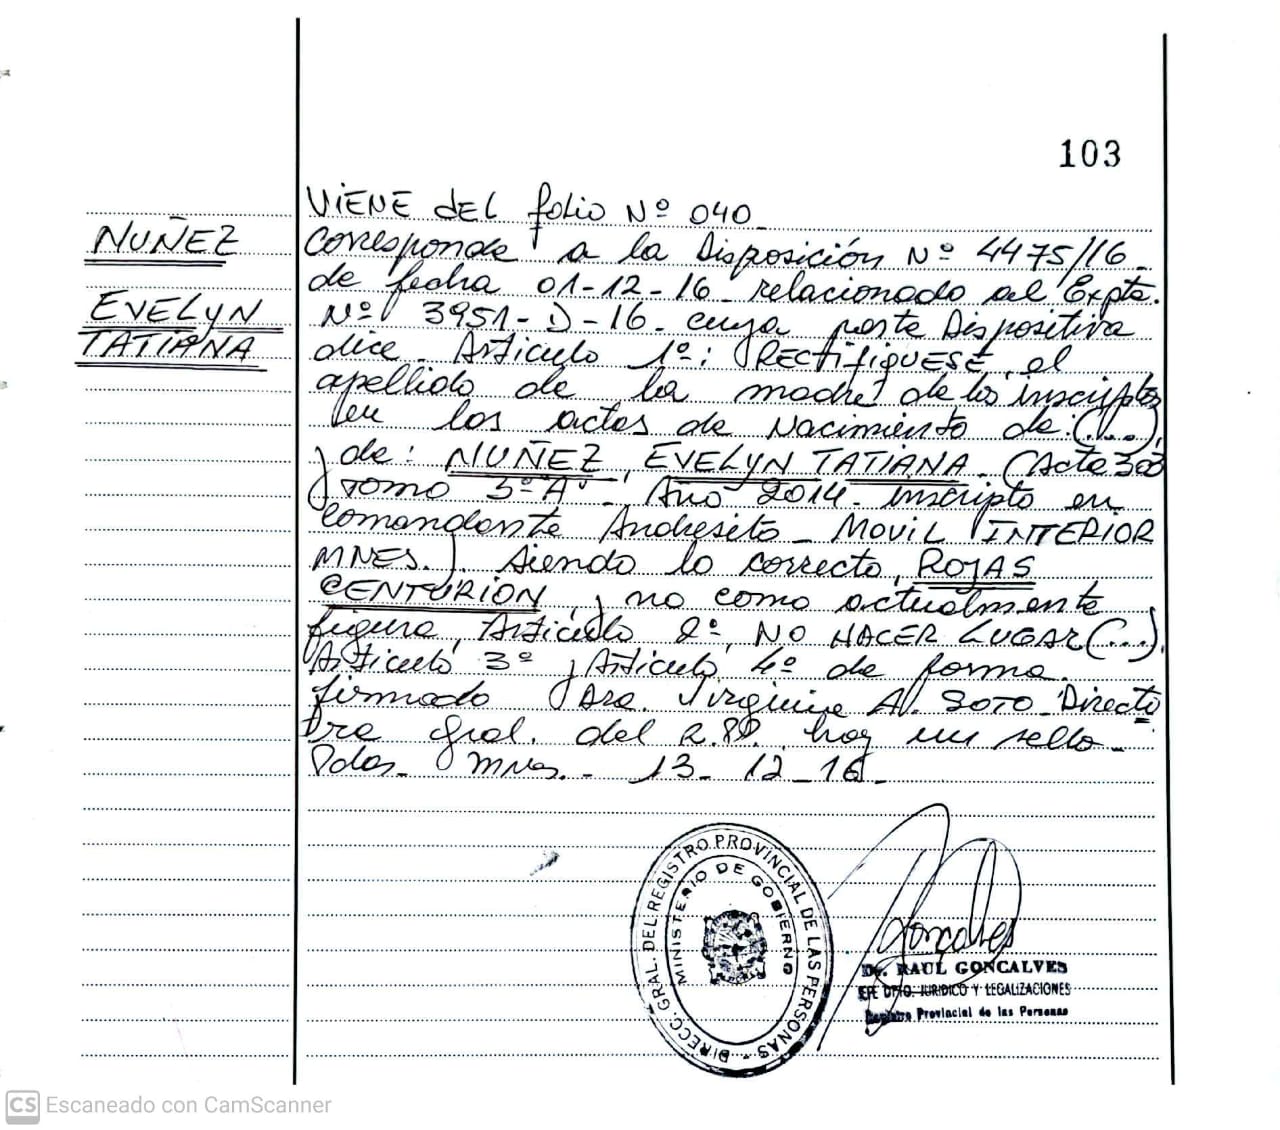 103
NUÑEZ
EVELYN
TATIANA
VIENE del folio Nº 040
Corresponde a la Disposición Nº 4475/16
de fecha 01-12-16 relacionado al Expte.
Nº 3951-D-16. cuya parte Dispositiva
dice. Articulo 1º: RECTIFIQUESE el
apellido de la madre de los inscriptos
en los actas de Nacimiento de: (...),
y de: NUÑEZ, EVELYN TATIANA. (Acta
Tomo 3º A - Año 2014. inscripto en
Comandante Andresito - MOVIL INTERIOR
MNES.). Siendo lo correcto, ROJAS
CENTURION, y no como actualmente
figura, Articulo 2º NO HACER LUGAR (...).
Articulo 3º y Articulo 4º de forma.
firmado Dra. Virginia A. SOTO Directo
Gral. del hay un sello-
Pdas. Mnes. - 13-12-16-
DIRECC. GRAL. DEL REGISTRO PROVINCIAL DE LAS PERSONAS
MINISTERIO DE GOBIERNO
Goncalves
Dr. RAUL GONCALVES
DPTO. JURIDICO Y LEGALIZACIONES
Registro Provincial de las Personas
CS Escaneado con CamScanner